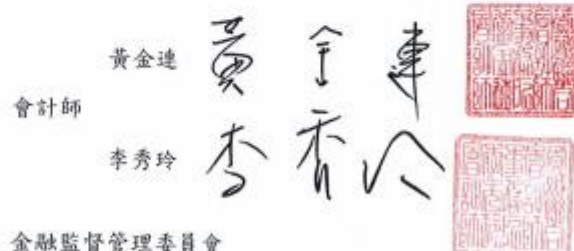 黃金連 黃金連
會計師
李秀玲 李秀玲
金融監督管理委員會